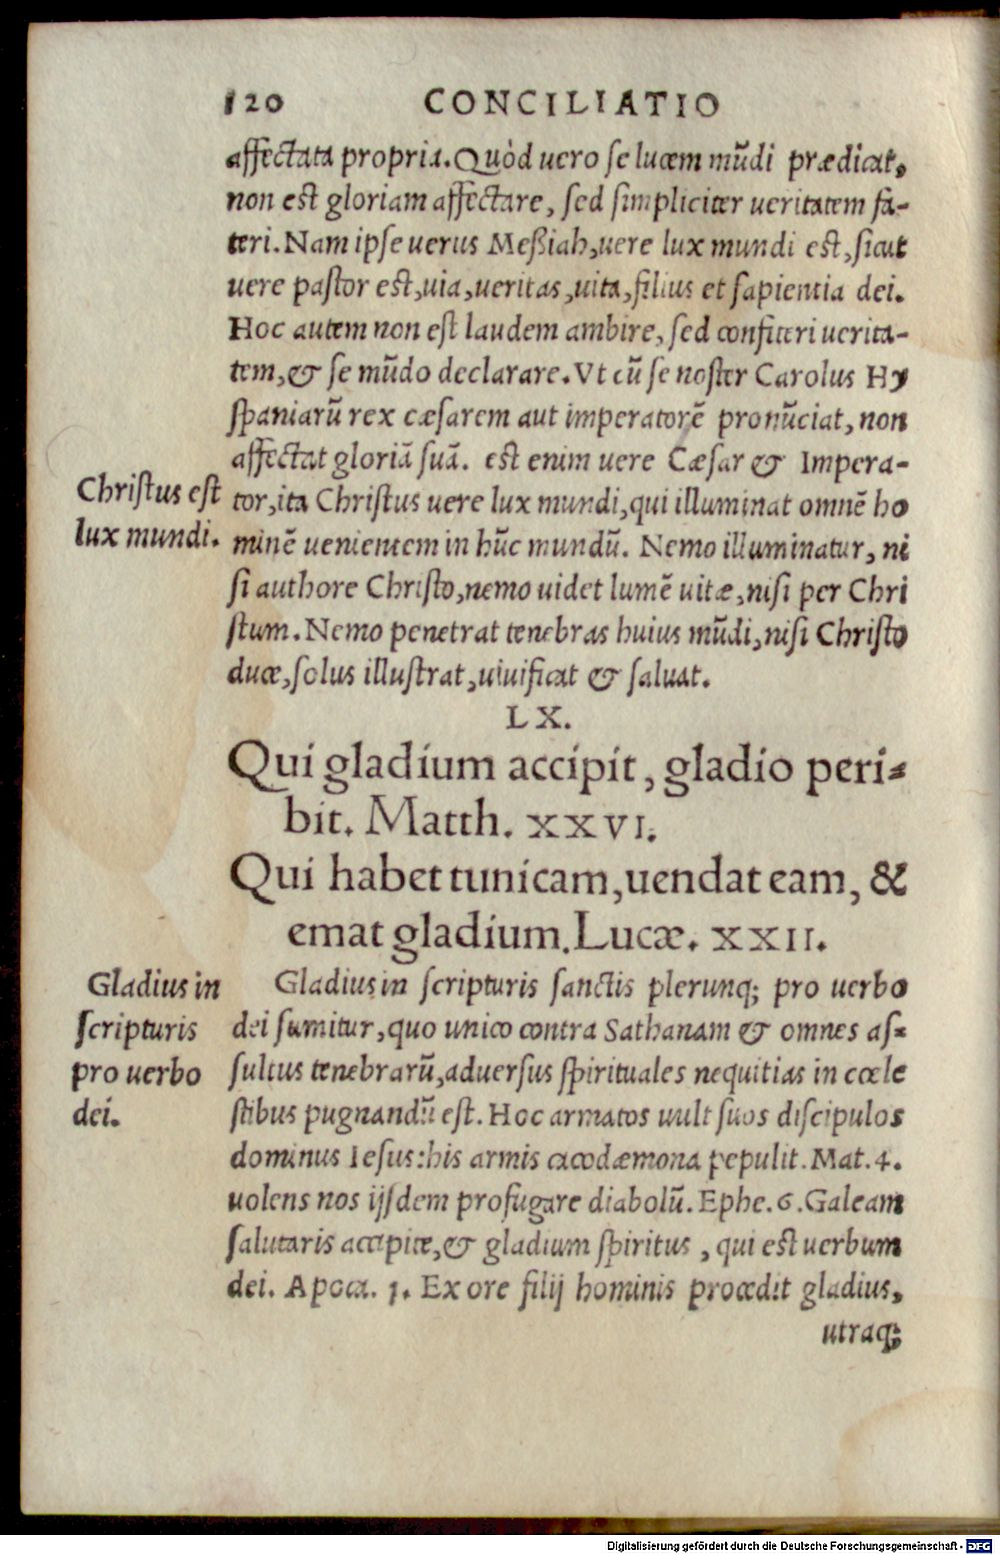 120 CONCILIATIO
affectata propria. Quòd uero se lucem mũdi prædicat,
non est gloriam affectare, sed simpliciter ueritatem fa-
teri. Nam ipse uerus Meßiah, uere lux mundi est, sicut
uere pastor est, uia, ueritas, uita, filius et sapientia dei.
Hoc autem non est laudem ambire, sed confiteri uerita-
tem, & se mũdo declarare. Vt cũ se noster Carolus Hy
spaniarũ rex cæsarem aut imperatorẽ pronũciat, non
affectat gloriã suã. est enim uere Cæsar & Impera-
Christus est
lux mundi.
tor, ita Christus uere lux mundi, qui illuminat omnẽ ho
minẽ uenientem in hũc mundũ. Nemo illuminatur, ni
si authore Christo, nemo uidet lumẽ uitæ, nisi per Chri
stum. Nemo penetrat tenebras huius mũdi, nisi Christo
duce, solus illustrat, uiuificat & saluat.
LX.
Qui gladium accipit, gladio peri-
bit. Matth. XXVI.
Qui habet tunicam, uendat eam, &
emat gladium. Lucæ. XXII.
Gladius in
scripturis
pro uerbo
dei.
Gladius in scripturis sanctis plerunq; pro uerbo
dei sumitur, quo unico contra Sathanam & omnes as-
sultus tenebrarũ, aduersus spirituales nequitias in cœle
stibus pugnandũ est. Hoc armatos uult suos discipulos
dominus Iesus: his armis cacodæmona pepulit. Mat. 4.
uolens nos ijsdem profugare diabolũ. Ephe. 6. Galeam
salutaris accipite, & gladium spiritus, qui est uerbum
dei. Apoca. 1. Ex ore filij hominis procedit gladius,
utraq;
Digitalisierung gefördert durch die Deutsche Forschungsgemeinschaft - DFG